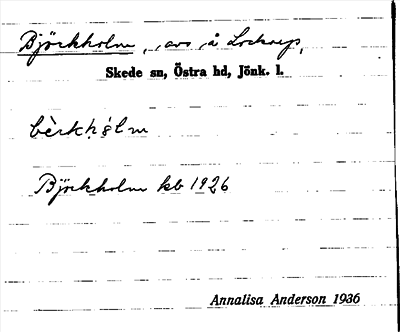 Björkholm, avs å Lockarp,
Skede sn, Östra hd, Jönk. l.
bèrkhólm
Björkholm kb 1926
Annalisa Anderson 1936